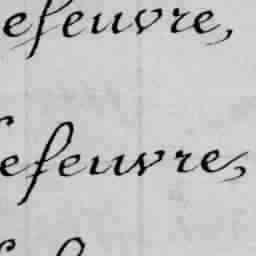 efeuvre,
efeuvre,